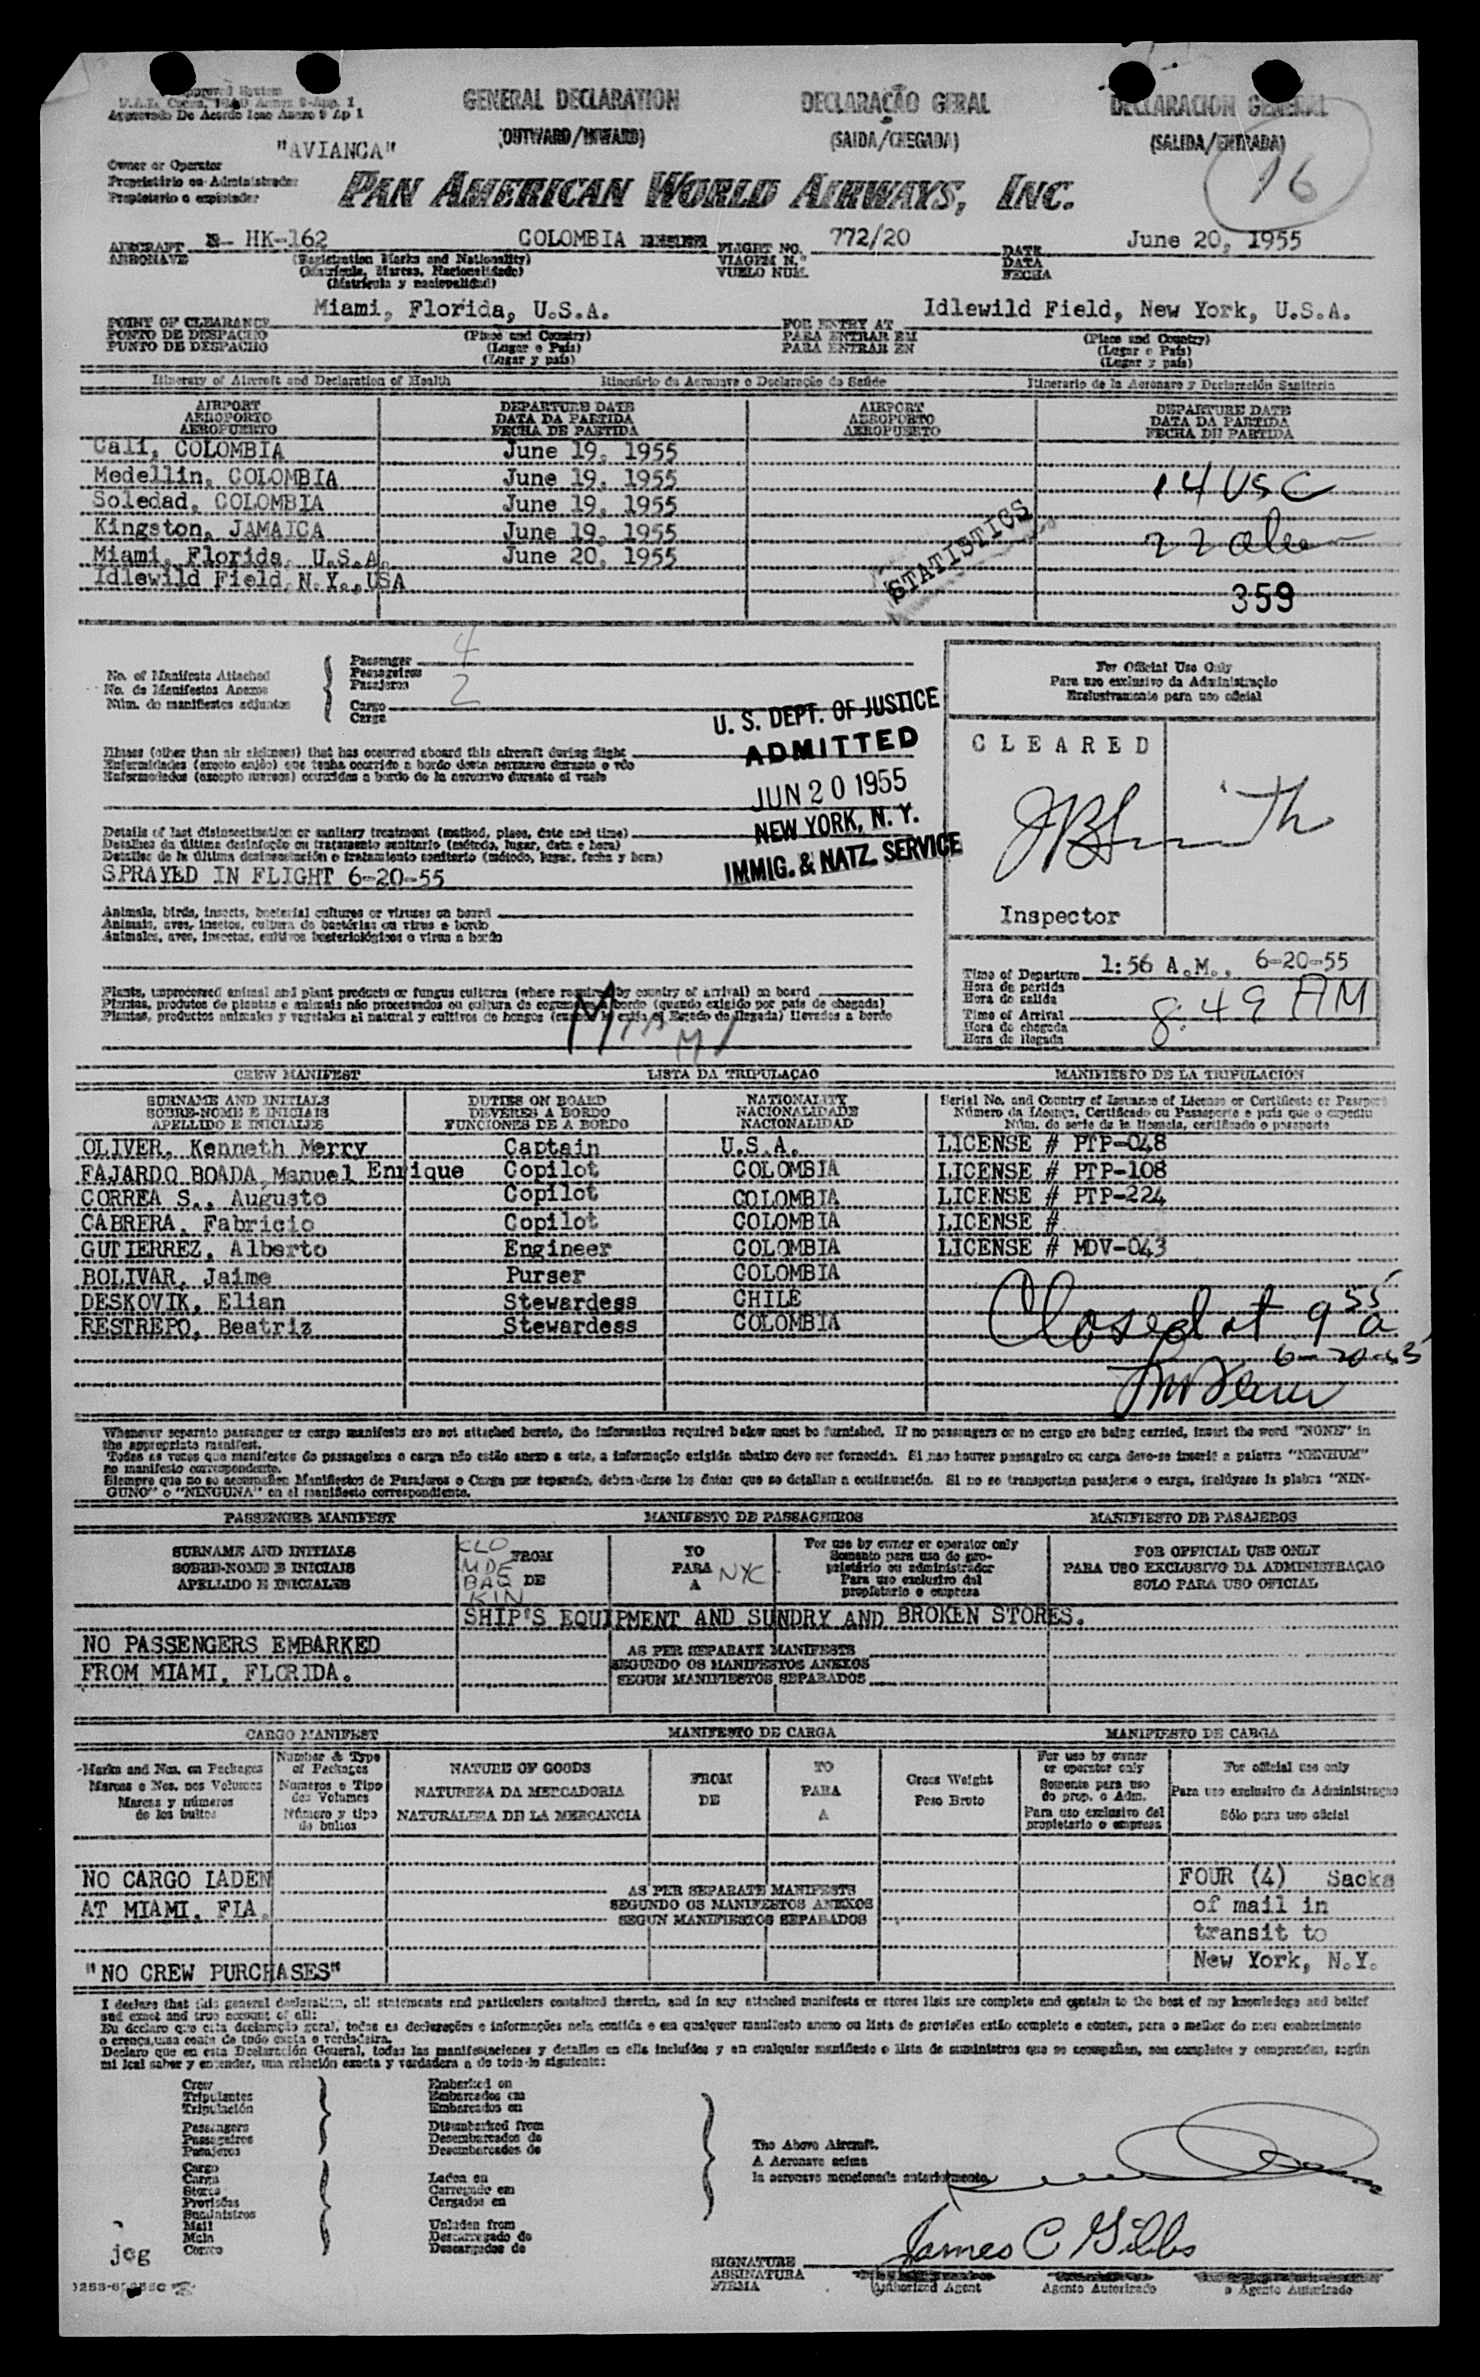 Approved System
GENERAL DECLARATION
DECLARAÇÃO GERAL
DECLARACION GENERAL
(OUTWARD/INWARD)
(SAIDA/CHEGADA)
(SALIDA/ENTRADA)
16
"AVIANCA"
Owner or Operator
Proprietário ou Administrador
Propietario o explotador
PAN AMERICAN WORLD AIRWAYS, INC.
AIRCRAFT HK-162 COLOMBIA FLIGHT NO. 772/20 DATE June 20, 1955
AERONAVE (Registration Marks and Nationality) VIAGEM N.° DATA
(Matrícula, Marcas, Nacionalidade) VUELO NUM. FECHA
(Matrícula y nacionalidad)
POINT OF CLEARANCE Miami, Florida, U.S.A. FOR ENTRY AT Idlewild Field, New York, U.S.A.
PONTO DE DESPACHO (Place and Country) PARA ENTRAR EM (Place and Country)
PUNTO DE DESPACHO (Lugar e País) PARA ENTRAR EN (Lugar e País)
(Lugar y país) (Lugar y país)
Itinerary of Aircraft and Declaration of Health Itinerário da Aeronave e Declaração de Saúde Itinerario de la Aeronave y Declaración Sanitaria
AIRPORT DEPARTURE DATE AIRPORT DEPARTURE DATE
AEROPORTO DATA DA PARTIDA AEROPORTO DATA DA PARTIDA
AEROPUERTO FECHA DE PARTIDA AEROPUERTO FECHA DE PARTIDA
Cali, COLOMBIA June 19, 1955
Medellin, COLOMBIA June 19, 1955 14 USC
Soledad, COLOMBIA June 19, 1955
Kingston, JAMAICA June 19, 1955 22
Miami, Florida, U.S.A. June 20, 1955
Idlewild Field, N.Y., USA
STATISTICS
359
No. of Manifests Attached Passenger 4
No. de Manifestos Anexos Passageiros
Núm. de manifiestos adjuntos Pasajeros
Cargo 2
Carga
For Official Use Only
Para uso exclusivo da Administração
Exclusivamente para uso oficial
U. S. DEPT. OF JUSTICE
ADMITTED
JUN 20 1955
NEW YORK, N. Y.
IMMIG. & NATZ. SERVICE
CLEARED
JB Smith
Inspector
Illness (other than air sickness) that has occurred aboard this aircraft during flight
Enfermidades (exceto enjôo) que tenha ocorrido a bordo desta aeronave durante o vôo
Enfermedades (excepto mareos) ocurridas a bordo de la aeronave durante el vuelo
Details of last disinsectisation or sanitary treatment (method, place, date and time)
Detalhes da última desinfeção ou tratamento sanitario (método, lugar, data e hora)
Detalles de la última desinsectación o tratamiento sanitario (método, lugar, fecha y hora)
SPRAYED IN FLIGHT 6-20-55
Animals, birds, insects, bacterial cultures or viruses on board
Animais, aves, insetos, cultura de bactérias ou virus a bordo
Animales, aves, insectos, cultivos bacteriológicos o virus a bordo
Time of Departure 1:56 A.M., 6-20-55
Hora da partida
Hora de salida
Time of Arrival 8:49 AM
Hora de chegada
Hora de llegada
Plants, unprocessed animal and plant products or fungus cultures (where required by country of arrival) on board
Plantas, produtos de plantas e animais não processados ou cultura de cogumelos a bordo (quando exigido por país de chegada)
Plantas, productos animales y vegetales al natural y cultivos de hongos (cuando lo exija el Estado de llegada) llevados a bordo
Miami
CREW MANIFEST LISTA DA TRIPULAÇAO MANIFIESTO DE LA TRIPULACION
SURNAME AND INITIALS DUTIES ON BOARD NATIONALITY Serial No. and Country of Issuance of License or Certificate or Passport
SOBRE-NOME E INICIAIS DEVERES A BORDO NACIONALIDADE Número da Licença, Certificado ou Passaporte e país que o expediu
APELLIDO E INICIALES FUNCIONES DE A BORDO NACIONALIDAD Núm. de serie de la licencia, certificado o pasaporte
OLIVER, Kenneth Merry Captain U.S.A. LICENSE # PTP-048
FAJARDO BOADA, Manuel Enrique Copilot COLOMBIA LICENSE # PTP-108
CORREA S., Augusto Copilot COLOMBIA LICENSE # PTP-224
CABRERA, Fabricio Copilot COLOMBIA LICENSE #
GUTIERREZ, Alberto Engineer COLOMBIA LICENSE # MDV-043
BOLIVAR, Jaime Purser COLOMBIA
DESKOVIK, Elian Stewardess CHILE
RESTREPO, Beatriz Stewardess COLOMBIA
Closed at 9 55 a
6-20-55
Whenever separate passenger or cargo manifests are not attached hereto, the information required below must be furnished. If no passengers or no cargo are being carried, insert the word "NONE" in
the appropriate manifest.
Todas as vezes que manifestos de passageiros e carga não estão anexo a este, a informação exigida abaixo deve ser fornecida. Si nao houver passageiro ou carga deve-se inserir a palavra "NENHUM"
no manifesto correspondente.
Siempre que no se acompañen Manifiestos de Pasajeros o Carga por separado, deben darse los datos que se detallan a continuación. Si no se transportan pasajeros o carga, inclúyase la plabra "NIN-
GUNO" o "NINGUNA" en el manifiesto correspondiente.
PASSENGER MANIFEST MANIFESTO DE PASSAGEIROS MANIFIESTO DE PASAJEROS
SURNAME AND INITIALS FROM TO For use by owner or operator only FOR OFFICIAL USE ONLY
SOBRE-NOME E INICIAIS DE PARA Somente para uso do pro- PARA USO EXCLUSIVO DA ADMINISTRAÇAO
APELLIDO E INICIALES A prietário ou administrador SOLO PARA USO OFICIAL
Para uso exclusivo del
propietario o empresa
CLO
MDE
BAQ
KIN
NYC
SHIP'S EQUIPMENT AND SUNDRY AND BROKEN STORES.
NO PASSENGERS EMBARKED AS PER SEPARATE MANIFESTS
FROM MIAMI, FLORIDA. SEGUNDO OS MANIFESTOS ANEXOS
SEGUN MANIFIESTOS SEPARADOS
CARGO MANIFEST MANIFESTO DE CARGA MANIFIESTO DE CARGA
Marks and Nos. on Packages Number & Type of Packages NATURE OF GOODS FROM TO Gross Weight For use by owner or operator only For official use only
Marcas e Nos. nos Volumes Numeros e Tipo dos Volumes NATUREZA DA MERCADORIA DE PARA Peso Bruto Somente para uso do prop. o Adm. Para uso exclusivo da Administraçao
Marcas y números de los bultos Número y tipo de bultos NATURALEZA DE LA MERCANCIA A Para uso exclusivo del propietario o empresa Sólo para uso oficial
NO CARGO LADEN AS PER SEPARATE MANIFESTS FOUR (4) Sacks
AT MIAMI, FLA. SEGUNDO OS MANIFESTOS ANEXOS of mail in
SEGUN MANIFIESTOS SEPARADOS transit to
"NO CREW PURCHASES" New York, N.Y.
I declare that this general declaration, all statements and particulars contained therein, and in any attached manifests or stores lists are complete and contain to the best of my knowledege and belief
and exact and true account of all:
Eu declaro que esta declaração geral, todas as declarações e informações nela contida e em qualquer manifesto anexo ou lista de provisões estão completo e contem, para o melhor do meu conhecimento
e crença, uma conta de tudo exata e verdadeira.
Declaro que en esta Declaración General, todas las manifestaciones y detalles en ella incluídos y en cualquier manifiesto o lista de suministros que se acompañan, son completos y comprenden, según
mi leal saber y entender, una relación exacta y verdadera de todo lo siguiente:
Crew Embarked on
Tripulantes Embarcados em
Tripulación Embarcados en
Passengers Disembarked from
Passageiros Desembarcados de
Pasajeros Desembarcados de
Cargo
Carga Laden on
Stores Carregado em
Provisões Cargados en
Suministros
Mail Unladen from
Mala Descarregado de
Correo Descargados de
The Above Aircraft.
A Aeronave acima
la aeronave mencionada anteriormente
jcg
James C Gibbs
SIGNATURE
ASSINATURA
FIRMA
Authorized Agent Agente Autorizado o Agente Autorizado